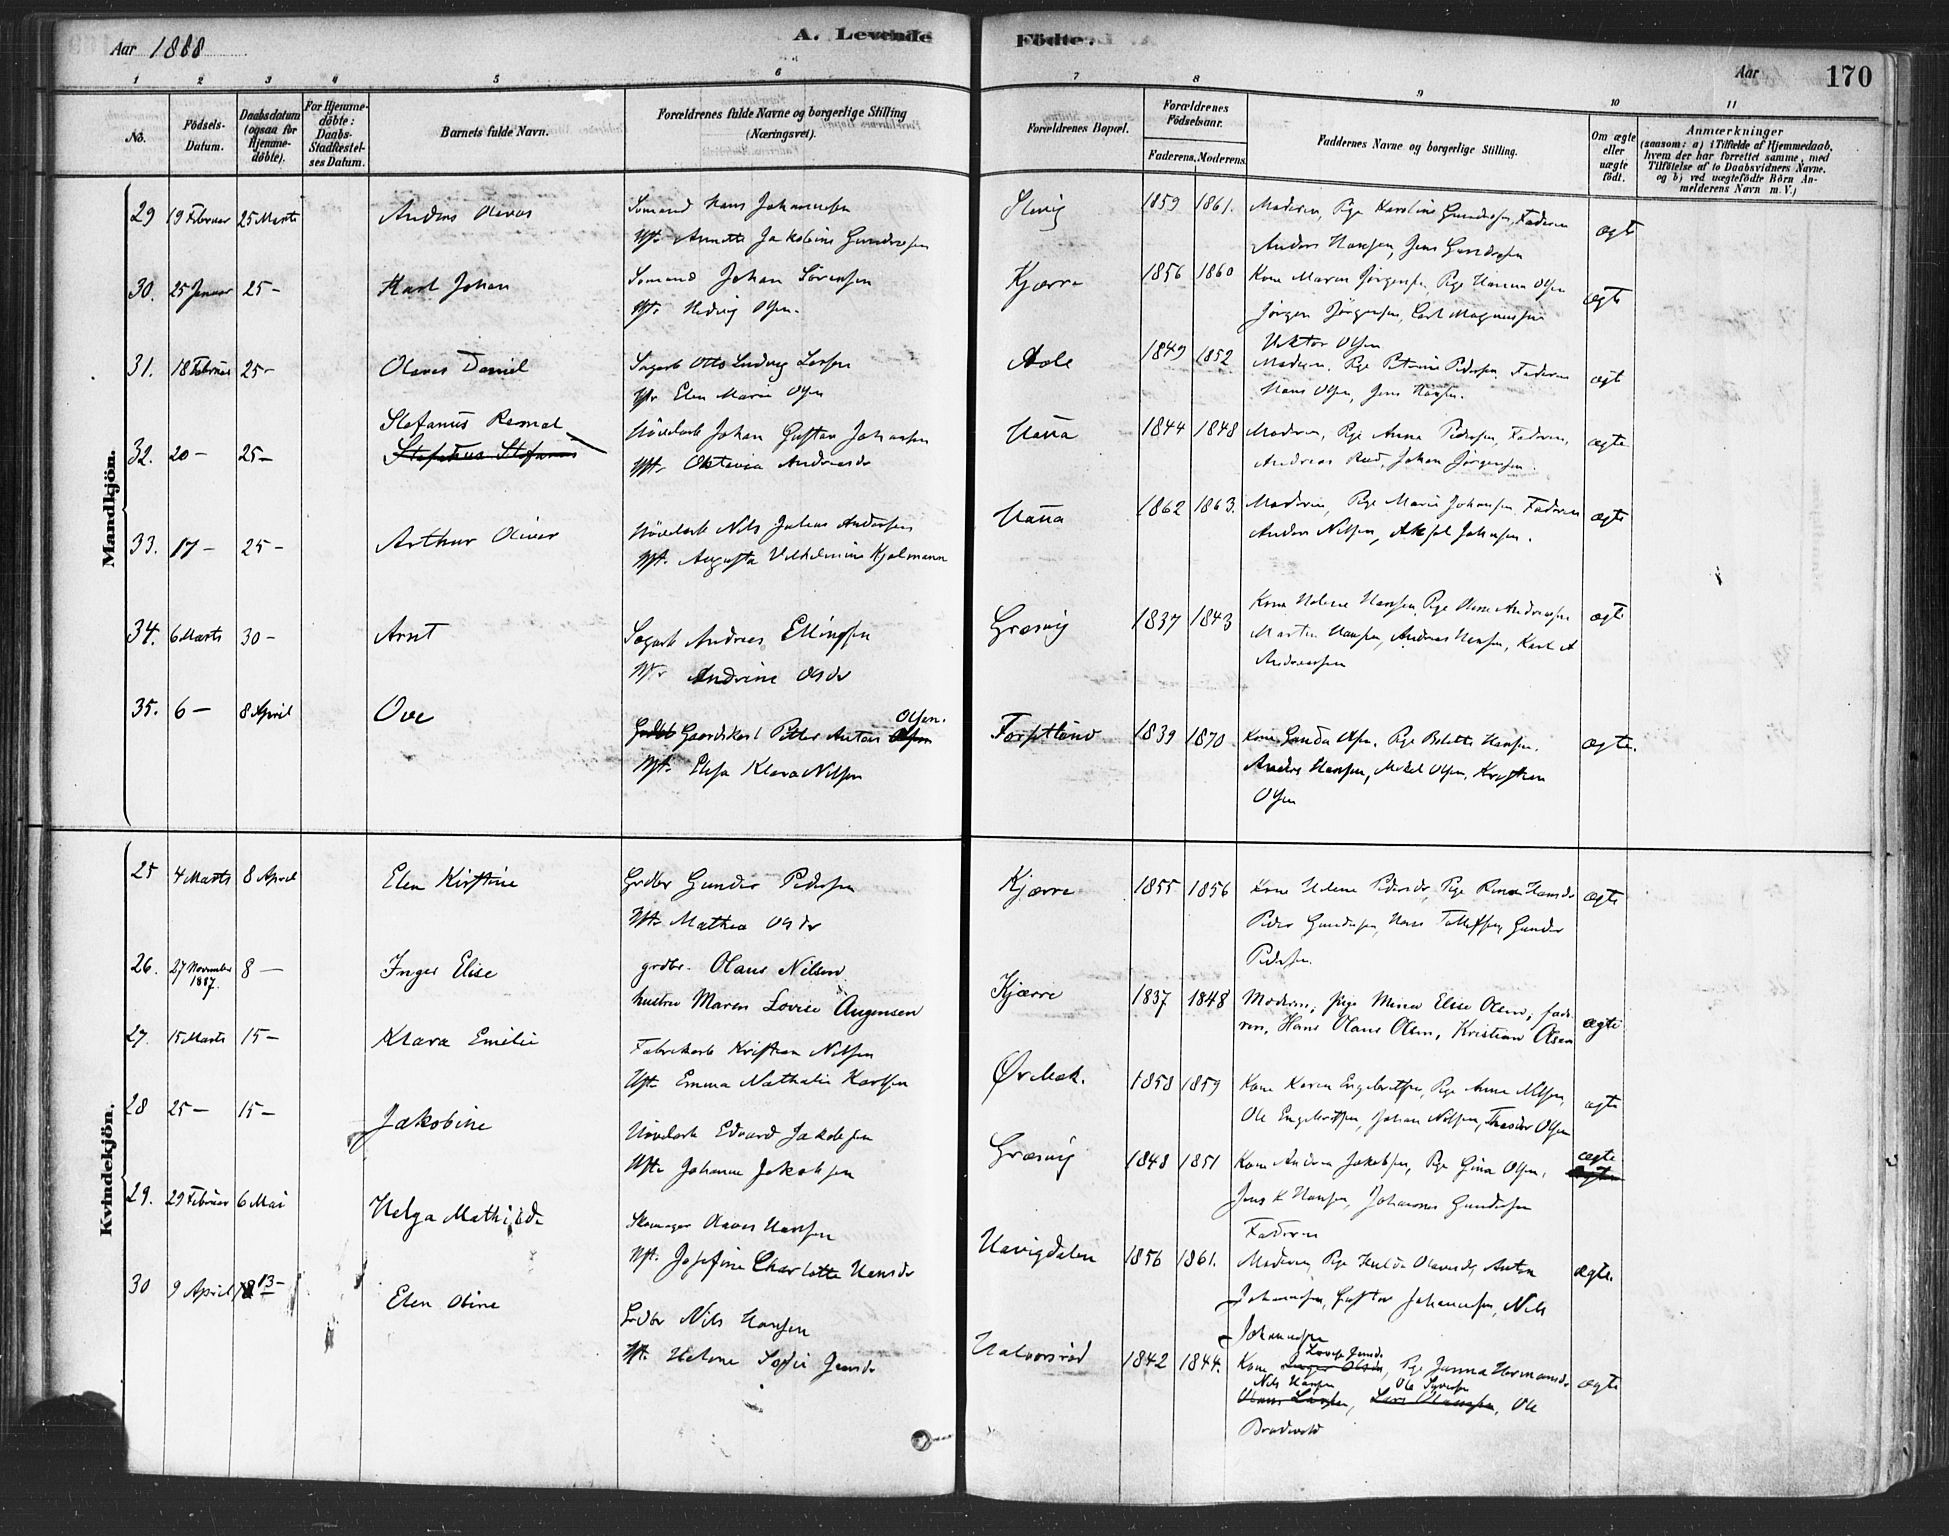 Aar 1888
A. Levende
Födte.
Aar
170
1 2 3 4 5 6 7 8 9 10 11
No.
Födsels-
Datum.
Daabsdatum
(ogsaa for
Hjemme-
döbte).
For Hjemme-
döbte:
Daabs-
Stadfæstel-
ses Datum.
Barnets fulde Navn.
Forældrenes fulde Navne og borgerlige Stilling
(Næringsvei).
Forældrenes Bopæl.
Forældrenes
Födselsaar.
Faderens. Moderens.
Faddernes Navne og borgerlige Stilling.
Om ægte
eller
uægte
født.
Anmærkninger
(saasom: a) i Tilfælde af Hjemmedaab,
hvem der har forrettet samme, med
Tilföielse af to Daabsvidners Navne.
og b) ved uægtefödte Börn An-
melderens Navn m. V.)
Mandkjön.
29 19 Februar 25 Marts
Anders Olavus
Sømand Hans Johannesen
Hst. Annette Jakobine Gundersen
Slevig
1859 1861.
Moderen, Pige Karoline Gundersen, Faderen
Anders Hansen, Jens Gundersen
ægte
30. 25 Januar 25 -
Karl Johan
Sømand Johan Sørensen
Hst. Hedvig Olsen.
Kjærre
1856 1860
Kone Maren Jørgensen, Pige Hanna Olsen
Jørgen Jørgensen, Carl Magnussen
Viktor Olsen
ægte
31. 18 Februar 25 -
Olaves Daniel
Sagarb Otto Ludvig Larsen
Hst. Elen Marie Olsen
Aale
1849 1852
Moderen, Pige Petrine Pedersen, Faderen
Hans Olsen, Jens Hansen.
ægte
32. 20 - 25 -
Stefanus Remal
Høvlarb Johan Gustav Johansen
Hst. Oktavia Andreasdr
Haua
1844 1848
Moderen, Pige Anna Pedersen, Faderen,
Andreas Rød, Johan Jørgensen.
ægte
33. 17 - 25 -
Arthur Oliver
Høvlarb Nils Julius Andersen
Hst. Augusta Vilhelmine Hjelmann
Haua
1862 1863.
Moderen, Pige Marie Johansen, Faderen
Anders Nilsen, Aksel Johnsen.
ægte
34. 6 Marts 30 -
Arnt
Sagarb Andreas Ellingsen
Hst. Andrine Olsdr
Græsvig
1837 1843
Kone Helene Hansen, Pige Oline Andreassen
Martin Hansen, Andreas Hansen, Karl A
Andreassen
ægte
35. 6 - 8 April
Ove
Olsen.
Gaardskarl Petter Anton
Hst. Elisa Klara Nilsen
Forsetlund
1839 1870
Kone Gunda Olsen, Pige Bolette Hansen,
Anders Hansen, Mikal Olsen, Kristian
Olsen
ægte.
Kvindekjön.
25 4 Marts 8 April
Elen Kirstine
Grdbr Gunder Pedersen
Hst. Mathea Olsdr
Kjærre
1855 1856
Kone Helene Pedersdr, Pige Hansdr
Peder Gundersen, Hans Tollefsen, Gunder
Pedersen.
ægte
26. 27 November 1887. 8 -
Inger Elise
grdbr. Olaus Nilsen
hustru Maren Lovise Augensen
Kjærre
1837 1848
Moderen, pige Mina Elise Olsen, fade-
ren, Hans Olaus Olsen, Kristian Olsen
ægte
27. 15 Marts 15 -
Klara Emilie
Fabrikarb Kristian Nilsen
Hst. Emma Nathalie Karlsen
Ørebek.
1858 1859
Kone Karen Engebretsen, Pige Anna Nilsen,
Ole Engebretsen, Johan Nilsen, Theodor Olsen
ægte
28 25 - 15 -
Jakobine
Høvlarb Edvard Jakobsen
Hst. Johanne Jakobsen
Græsvig
1848 1851
Kone Andrea Jakobsen, Pige Gina Olsen,
Jens K Hansen, Johannes Gundersen
Faderen
ægte
29. 29 Februar 6 Mai
Helga Mathilde
Skomager Olaves Hansen
Hst. Josefine Charlotte Hansdr
Havigdalen
1856 1861.
Moderen, Pige Hulda Olavesdr, Anton
Johannesen, Gustav Johannesen, Nils
Johannesen
ægte.
30 9 April 13 -
Elen Oline
Grdbr Nils Hansen
Hst. Helene Sofie Jensdr
Halvorsrød
1842 1844.
Kone Inger Olsdr, Pige Janna Hermansdr
Nils Hansen Ole
Olaus Larsen, Lars Olaussen, Ole
Bradvold
ægte